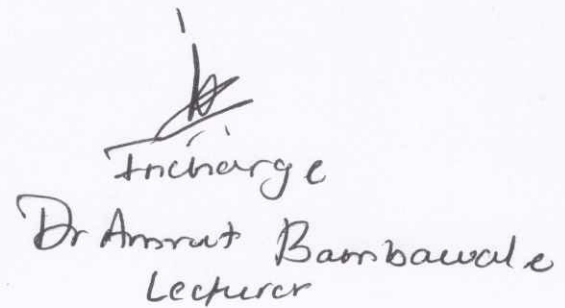 Incharge
Dr Amrut Bambawale
Lecturer